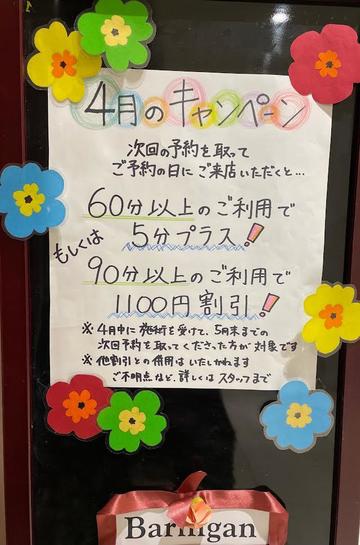 4月のキャンペーン
次回の予約を取って
ご予約の日にご来店いただくと…
60分以上のご利用で
5分プラス!
もしくは
90分以上のご利用で
1100円割引!
※4月中に施術を受けて、5月末までの
次回予約を取ってくださった方が対象です
※他割引との併用はいたしかねます
ご不明点など、詳しくはスタッフまで